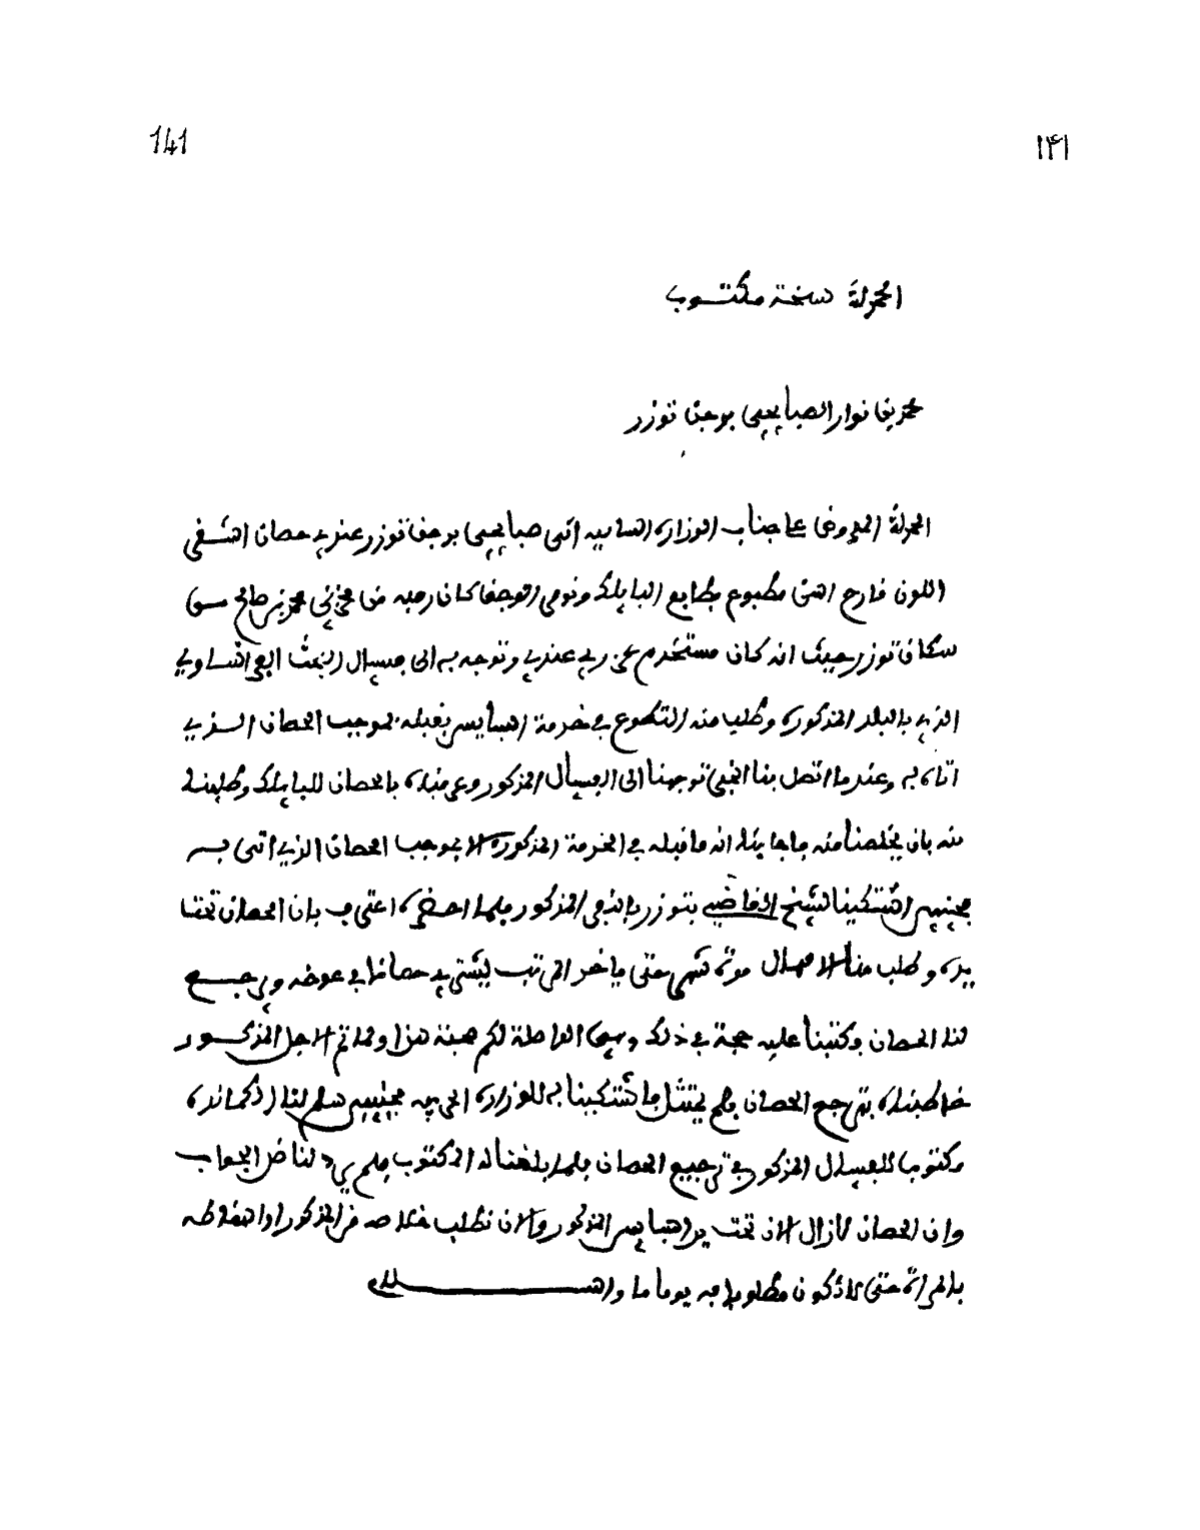 141 ۱۴۱
الحمد لله نسخة مكتوب
محمد بن نوار الصبايحي بوجق توزر
الحمد لله المعروض على جناب الوزارة الساميه انني صبايحي بوجق توزر عندي حصان اشقر
اللون قارح السن مطبوع بطابع البايلك ونومرو الوجق كان ركبه من مخزني محمد بن صالح من
سكان توزر حيث انه كان مستخدم عن ربي عندي وتوجه به الى فسيال البعث الفرانساوي
الذي بالبلد المذكورة وطلب منه التطوع في خدمة السبايس فقبله بموجب الحصان الذي
اتاه به وعندما اتصل بنا الخبر توجهنا الى الفسيال المذكور وعرفناه بالحصان للبايلك وطلبنا
منه بان يخلصنا منه فاجابنا انه ما قبله في الخدمة المذكورة الا بموجب الحصان الذي اتى به
فحينئذ اشتكينا لشيخ القاضي بتوزر بالنفر المذكور فلما احضره اعترف بان الحصان تحت
يده وطلب منا الامهال مدة شهر حتى ياخذ المرتب ليشتري حصانا في عوضه ويرجع
لنا الحصان وكتبنا عليه حجة في ذلك وهي الواصلة لكم صحبة هذا ولما تم الاجل المذكور
خاطبناه بترجع الحصان فلم يمتثل فاشتكينا به للوزارة الحربيه فحينئذ سلم لنا
مكتوبا للفسيال المذكور في ترجيع الحصان فلما بلغنا له المكتوب فلم يرد لنا الجواب
وان الحصان لازال الان تحت يد السبايس المذكور والان نطلب خلاصه من المذكور او اسقاطه
بالمرة حتى لا نكون مطلوبا فيه يوما ما والسلام